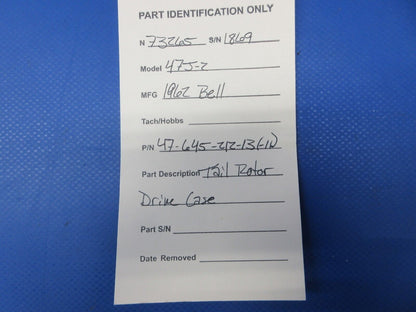 PART IDENTIFICATION ONLY
N 73265 S/N 1869
Model 47J-2
MFG 1962 Bell
Tach/Hobbs
P/N 47-645-212-13FIN
Part Description Tail Rotor
Drive Case
Part S/N
Date Removed